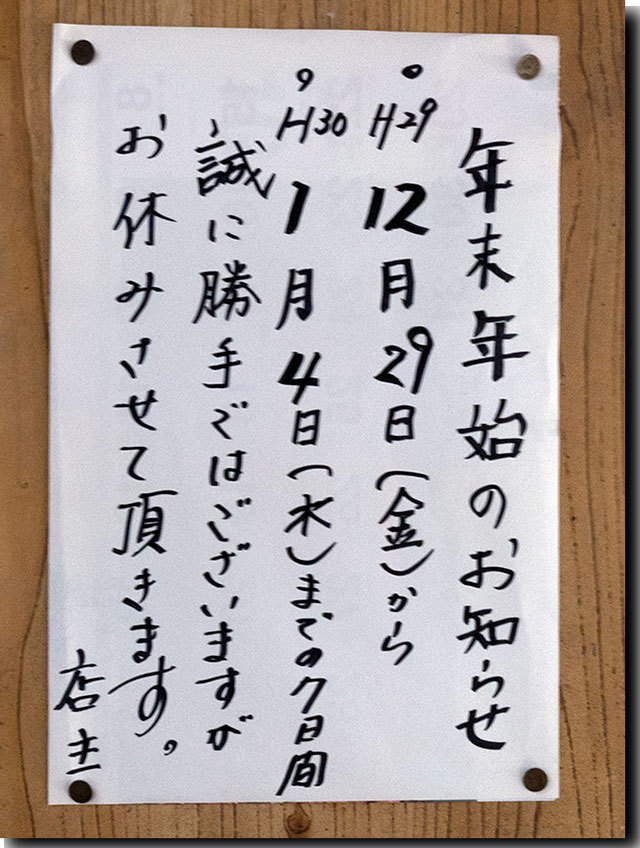 年末年始のお知らせ
H29 12月29日(金)から
H30 1月4日(水)までの7日間
誠に勝手ではございますが
お休みさせて頂きます。
店主